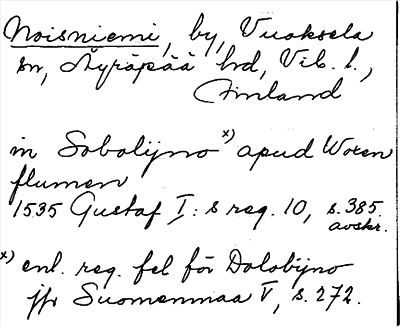 Noisniemi, by, Vuoksela
sn, Äyräpää hd, Vib. l.,
Finland
in Sobolijno x) apud Woxen
flumen
1535 Gustaf I:s reg. 10, s. 385.
avskr.
x) enl. reg. fel för Dolobijno
jfr Suomenmaa V, s. 272.